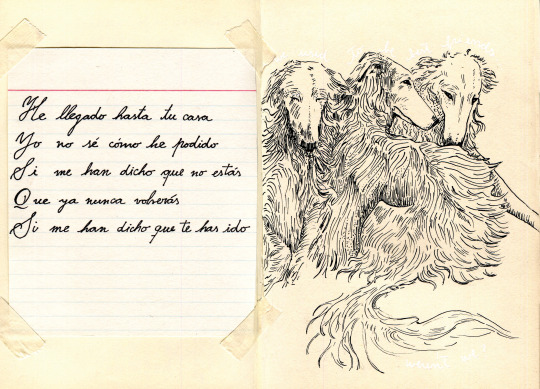 He llegado hasta tu casa
Yo no sé cómo he podido
Si me han dicho que no estás
Que ya nunca volverás
Si me han dicho que te has ido